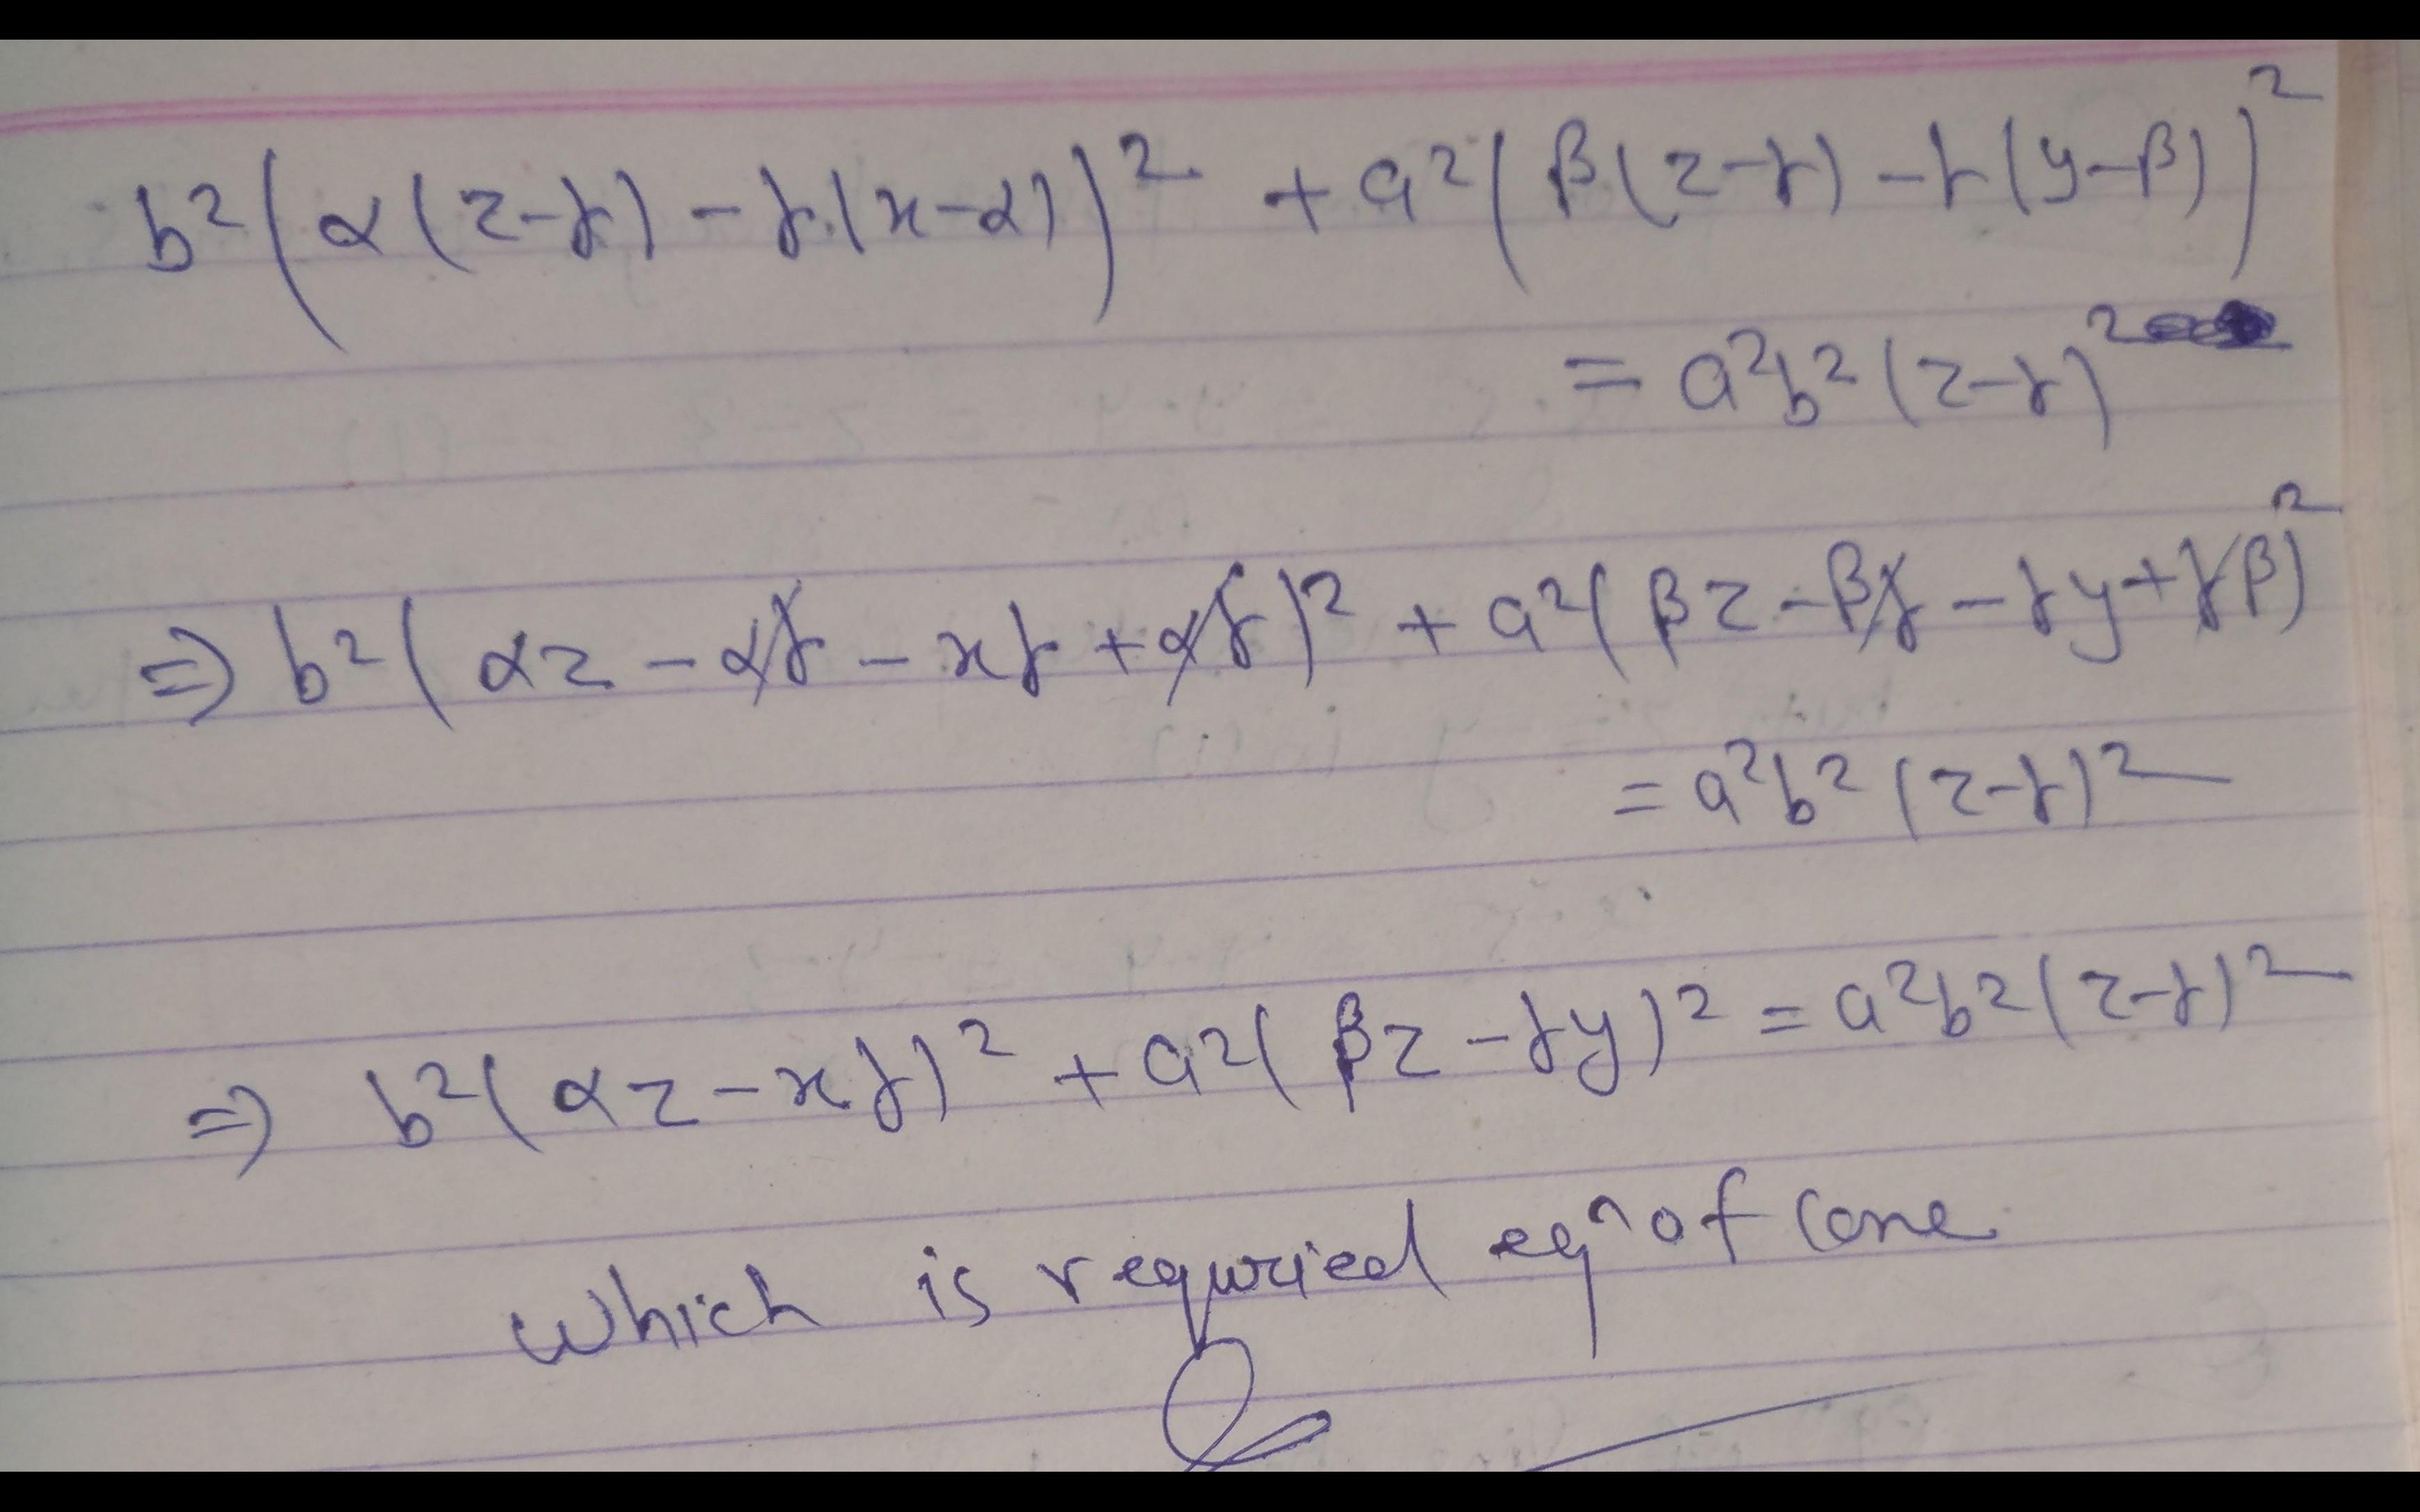 b²(α(z-γ) - γ(x-α))² + a²(β(z-γ) - γ(y-β))²
= a²b²(z-γ)²
⇒ b²(αz - αγ - xγ + αγ)² + a²(βz - βγ - γy + γβ)²
= a²b²(z-γ)²
⇒ b²(αz - xγ)² + a²(βz - γy)² = a²b²(z-γ)²
which is requried eqⁿ of cone